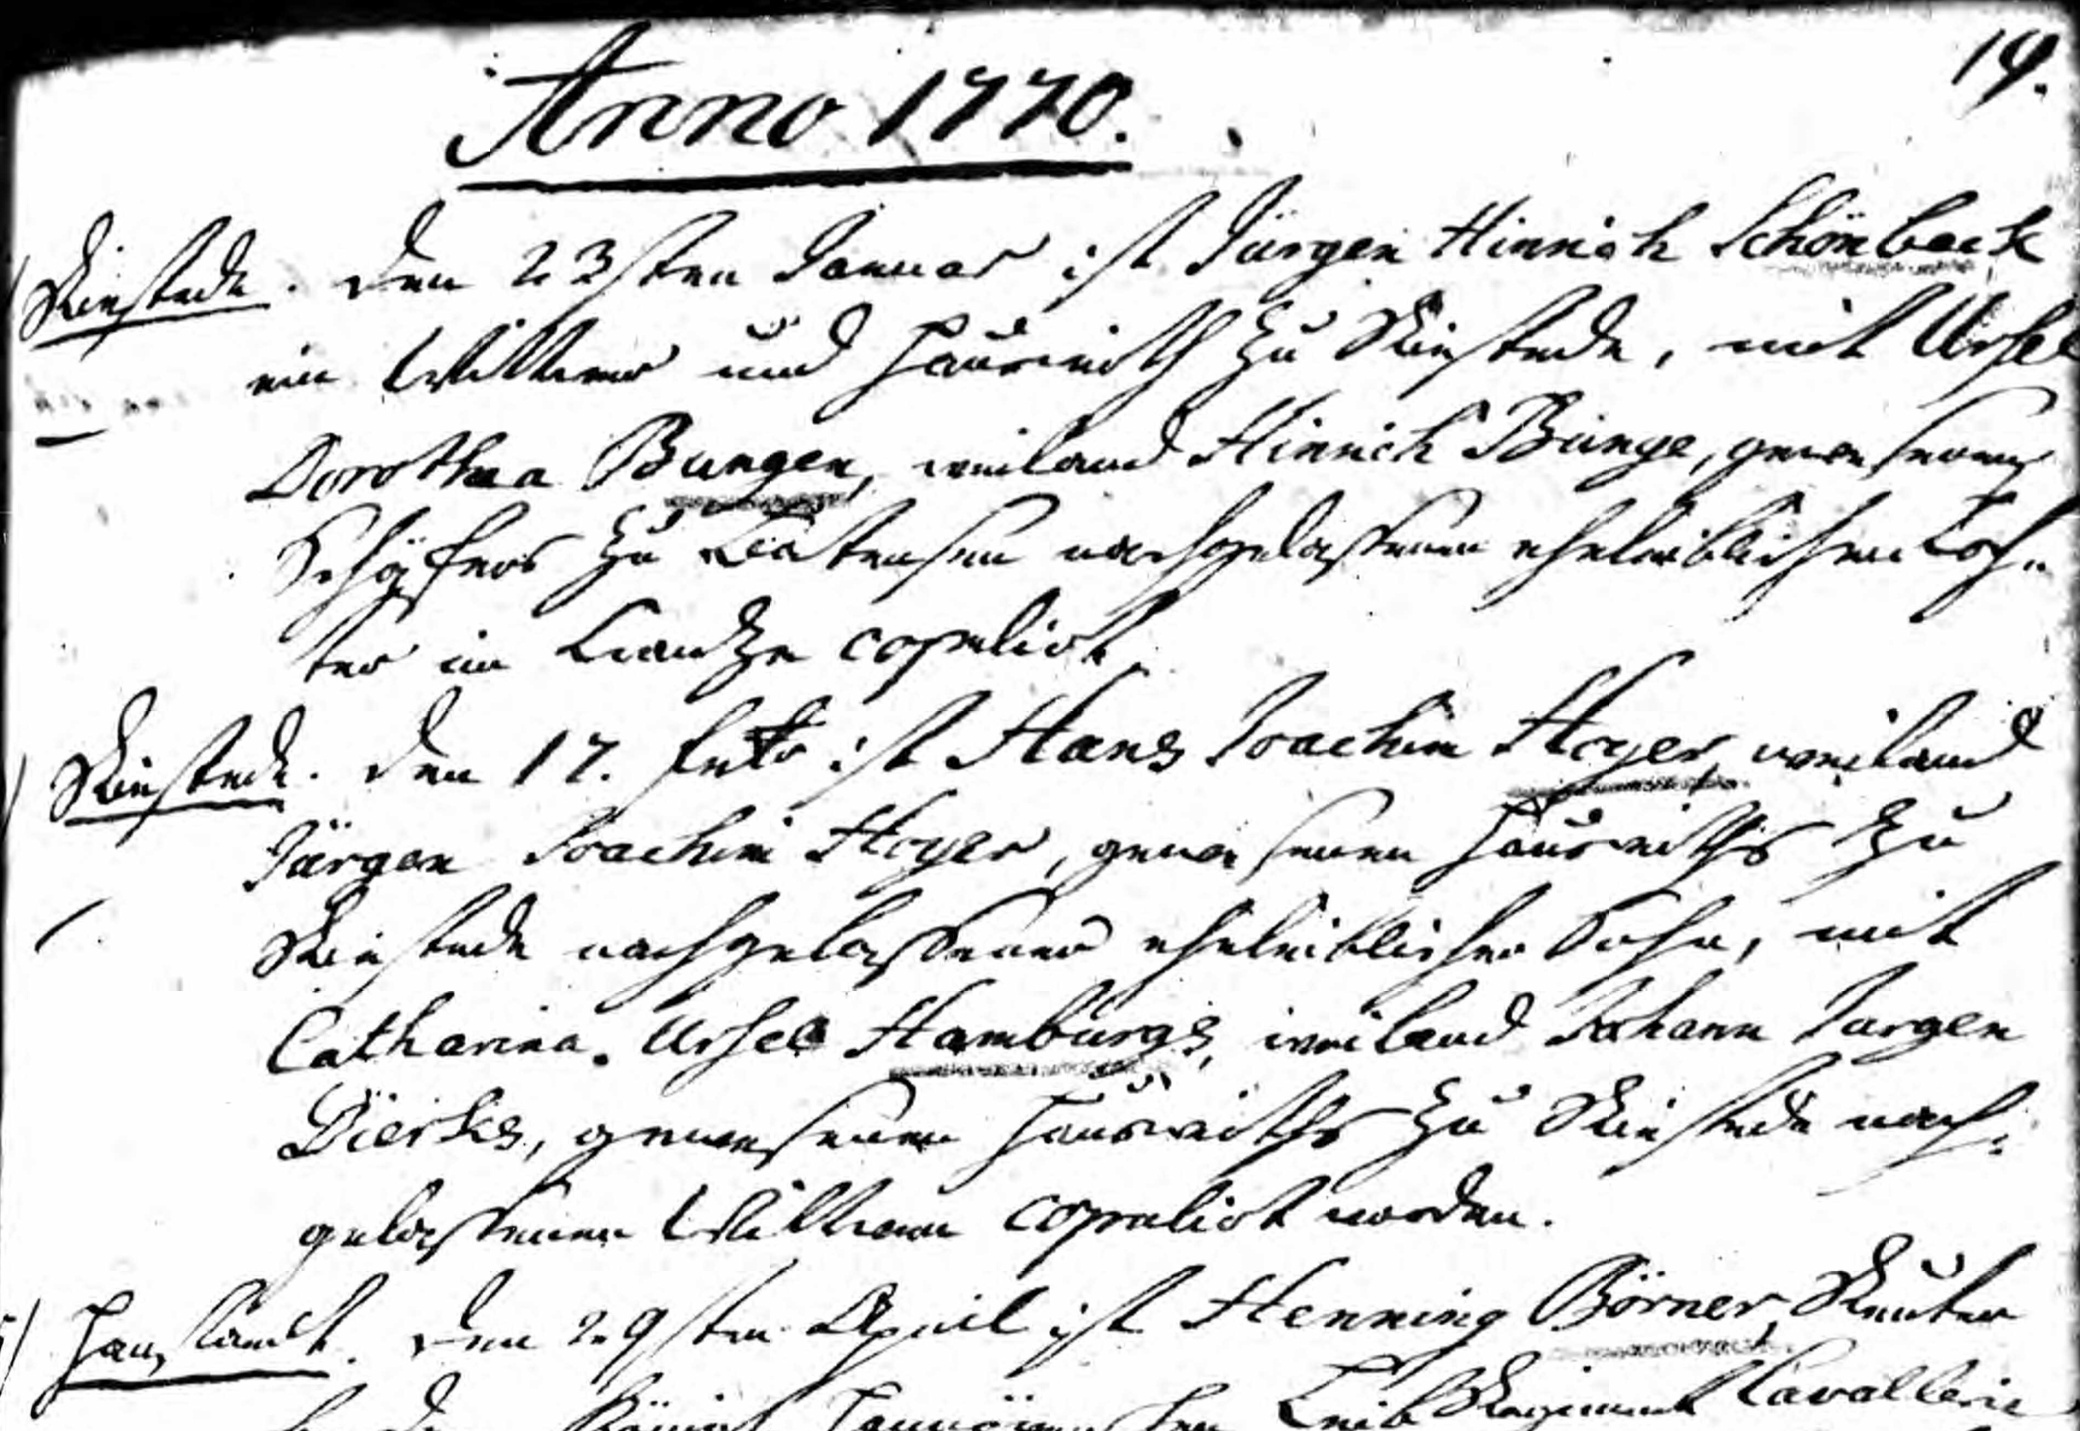 19.
Anno 1770.
Riestede. den 23sten Januar ist Jürgen Hinrich Schönbeck
ein Wittwer und Hauswirth zu Riestede, mit Ursel
Dorothea Bungen, weiland Hinrich Bunge, gewesenen
Schäfers zu Tätensen nachgelaßenen eheleiblichen Toch-
ter im Krantze copulirt.
Riestede. den 17. Febr ist Hans Joachim Hoyer, weiland
Jürgen Joachim Hoyer, gewesenen Hauswirths zu
Riestede nachgelaßener eheleiblicher Sohn, mit
Catharina. Ursel Hamburgs, weiland Johann Jürgen
Dierks, gewesenen Hauswirths zu Riestede nach-
gelaßenen Wittwen copulirt worden.
den 29sten April ist Henning Börner, Reuter
Leib Regiment Cavallerie